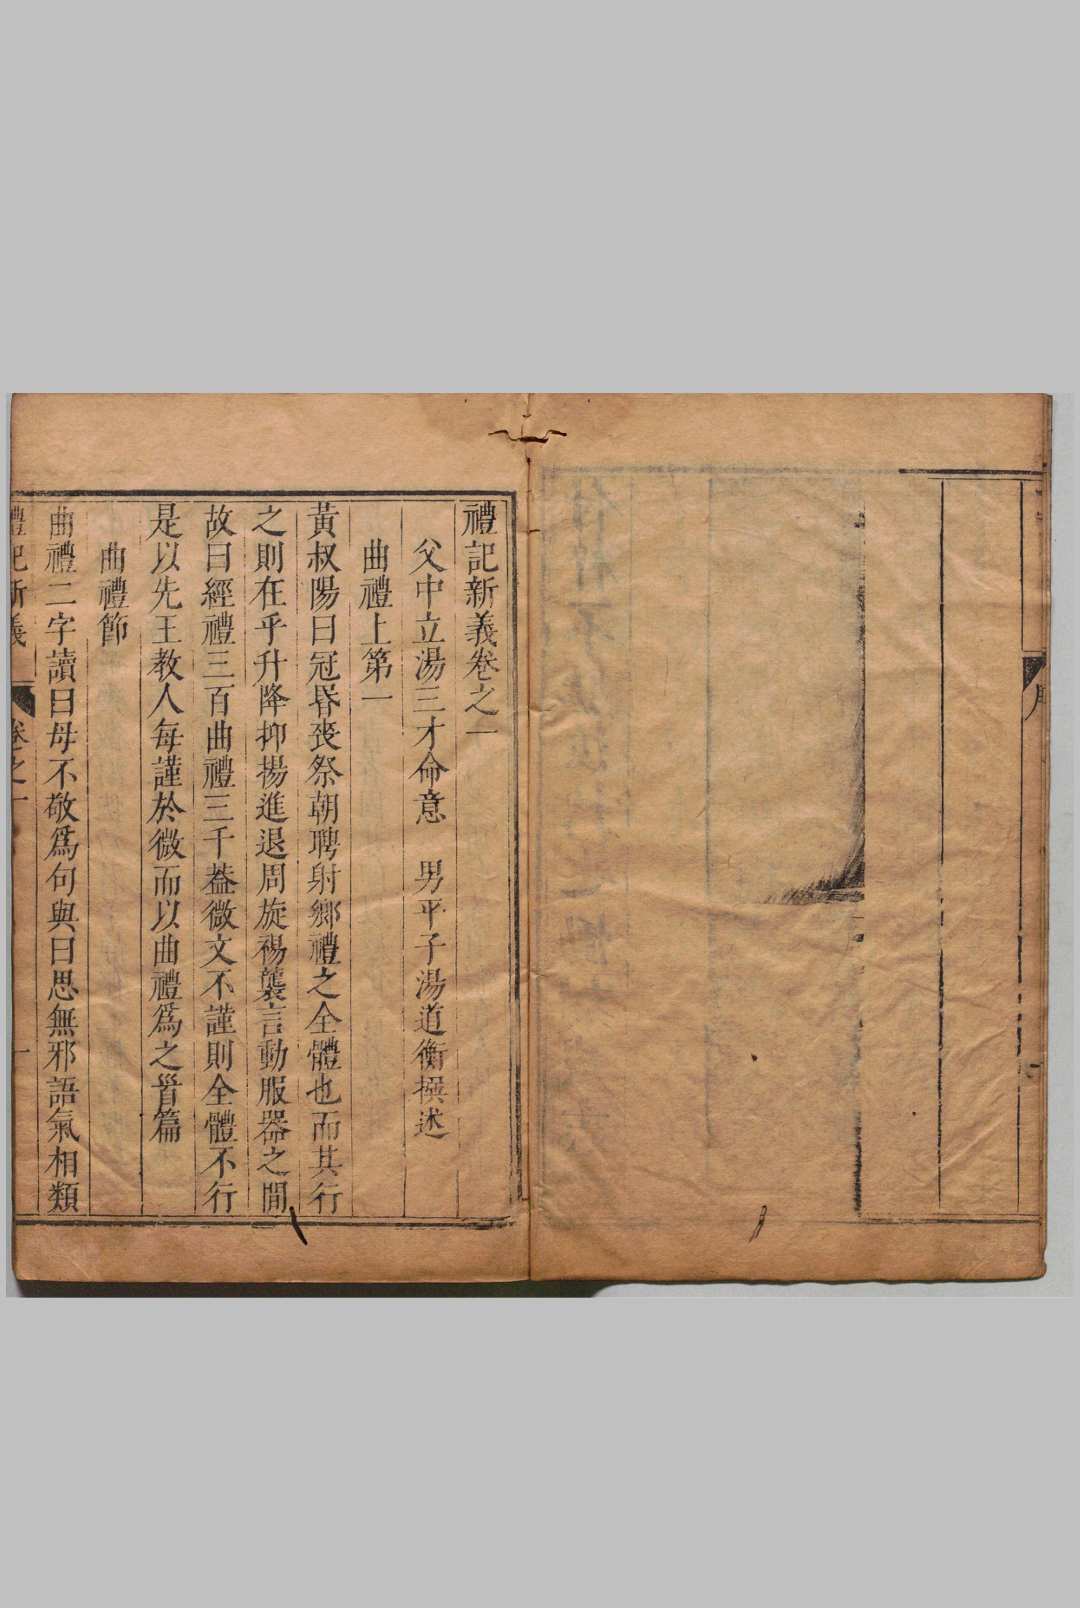 禮記新義卷之一
父中立湯三才命意　男平子湯道衡撰述
曲禮上第一
黃叔陽曰冠昏喪祭朝聘射鄉禮之全體也而其行
之則在乎升降抑揚進退周旋裼襲言動服器之間
故曰經禮三百曲禮三千葢微文不謹則全體不行
是以先王教人每謹於微而以曲禮爲之首篇
曲禮節
曲禮二字讀曰毋不敬爲句與曰思無邪語氣相類
禮記新義　卷之一　一